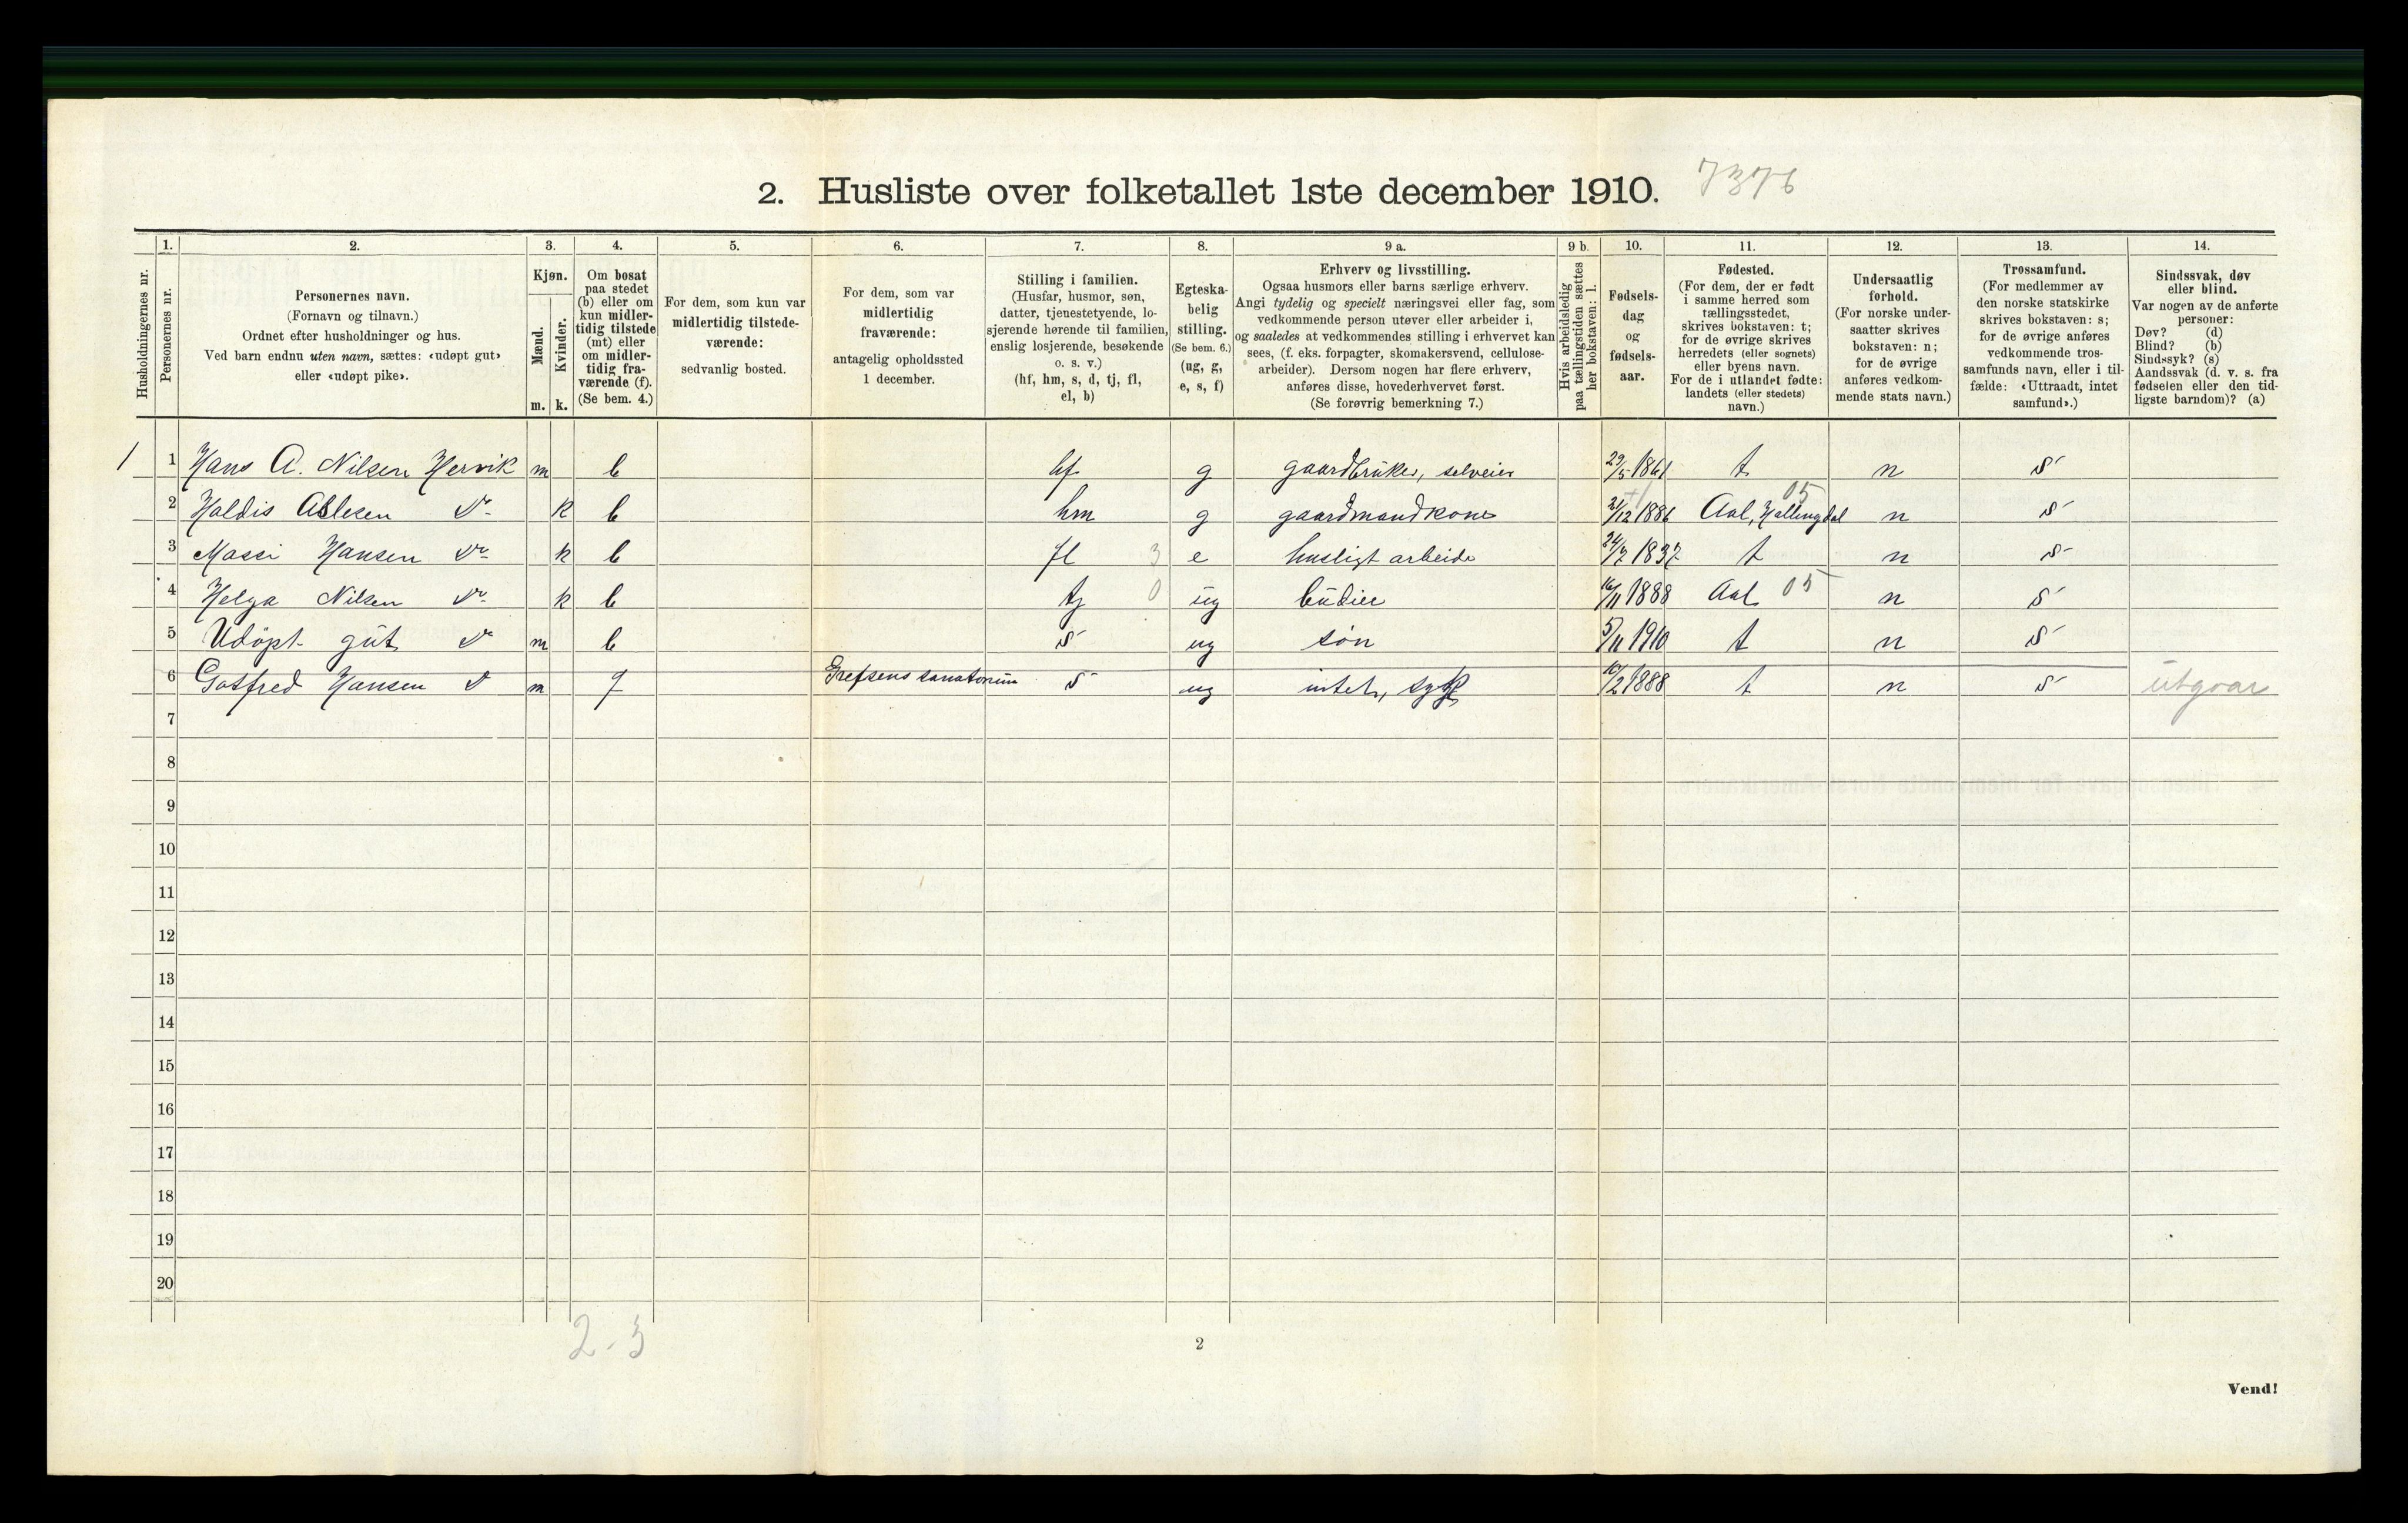 2. Husliste over folketallet 1ste december 1910. 7376
1. 2. 3. 4. 5. 6. 7. 8. 9 a. 9 b. 10. 11. 12. 13. 14.
Husholdningernes nr.
Personernes nr.
Personernes navn.
(Fornavn og tilnavn.)
Ordnet efter husholdninger og hus.
Ved barn endnu uten navn, sættes: «udøpt gut»
eller «udøpt pike».
Kjøn.
Mænd.
Kvinder.
m. k.
Om bosat
paa stedet
(b) eller om
kun midler-
tidig tilstede
(mt) eller
om midler-
tidig fra-
værende (f).
(Se bem. 4.)
For dem, som kun var
midlertidig tilstede-
værende:
sedvanlig bosted.
For dem, som var
midlertidig
fraværende:
antagelig opholdssted
1 december.
Stilling i familien.
(Husfar, husmor, søn,
datter, tjenestetyende, lo-
sjerende hørende til familien,
enslig losjerende, besøkende
o. s. v.)
(hf, hm, s, d, tj, fl,
el, b)
Egteska-
belig
stilling.
(Se bem. 6.)
(ug, g,
e, s, f)
Erhverv og livsstilling.
Ogsaa husmors eller barns særlige erhverv.
Angi tydelig og specielt næringsvei eller fag, som
vedkommende person utøver eller arbeider i,
og saaledes at vedkommendes stilling i erhvervet kan
sees, (f. eks. forpagter, skomakersvend, cellulose-
arbeider). Dersom nogen har flere erhverv,
anføres disse, hovederhvervet først.
(Se forøvrig bemerkning 7.)
Hvis arbeidsledig
paa tællingstiden sættes
her bokstaven: l.
Fødsels-
dag
og
fødsels-
aar.
Fødested.
(For dem, der er født
i samme herred som
tællingsstedet,
skrives bokstaven: t;
for de øvrige skrives
herredets (eller sognets)
eller byens navn.
For de i utlandet fødte:
landets (eller stedets)
navn.)
Undersaatlig
forhold.
(For norske under-
saatter skrives
bokstaven: n;
for de øvrige
anføres vedkom-
mende stats navn.)
Trossamfund.
(For medlemmer av
den norske statskirke
skrives bokstaven: s;
for de øvrige anføres
vedkommende tros-
samfunds navn, eller i til-
fælde: «Uttraadt, intet
samfund».)
Sindssvak, døv
eller blind.
Var nogen av de anførte
personer:
Døv? (d)
Blind? (b)
Sindssyk? (s)
Aandssvak (d. v. s. fra
fødselen eller den tid-
ligste barndom)? (a)
1 1 Hans A. Nilsen Hervik m b hf g gaardbruker, selveier 29/5 1861 t n s
2 Haldis Aslesen Do k b hm g gaardmandkone 21/12 1886 Aal, Hallingdal 05 n s
3 Massi Hansen Do k b fl 3 e husligt arbeide 24/7 1837 t n s
4 Helga Nilsen Do k b tj 0 ug budeie 16/11 1888 Aal 05 n s
5 Udöpt gut Do m b s ug søn 5/11 1910 t n s
6 Gotfred Hansen Do m f Grefsens sanatorium s ug intet, syk 10/2 1888 t n s utgaar
7
8
9
10
11
12
13
14
15
16
17
18
19
20
2-3
2
Vend!